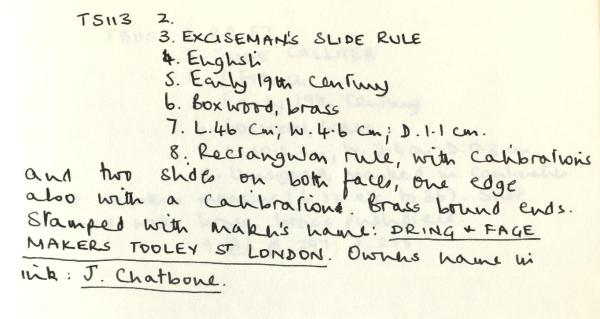 TS113 2.
3. EXCISEMAN'S SLIDE RULE
4. English
5. Early 19th Century
6. Boxwood, brass
7. L.46 cm; W.4.6 cm; D.1.1 cm.
8. Rectangular rule, with calibrations
and two slides on both faces, one edge
also with a calibrations. Brass bound ends.
Stamped with maker's name: DRING & FAGE
MAKERS TOOLEY ST LONDON. Owners name in
ink: J. Chatbone.